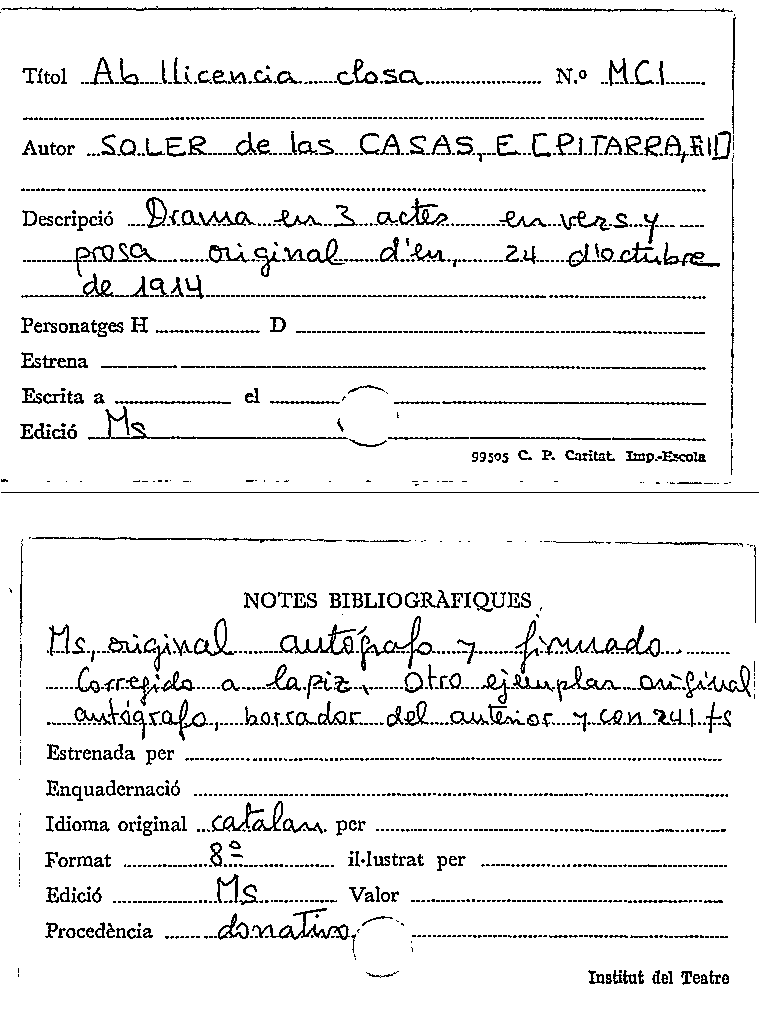 Títol Ab llicencia closa N.º MCI
Autor SOLER de las CASAS, E [PITARRA,
Descripció Drama en 3 actes en vers y
prosa original d'en, 24 d'octubre
de 1914
Personatges H D
Estrena
Escrita a el
Edició Ms
99505 C. P. Caritat. Imp.-Escola
NOTES BIBLIOGRÀFIQUES
Ms, original autógrafo y firmado.
Corregido a lapiz. Otro ejemplar original
autógrafo, borrador del anterior y con 241 fs
Estrenada per
Enquadernació
Idioma original catalan per
Format 8º il·lustrat per
Edició Ms Valor
Procedència donativo
Institut del Teatre